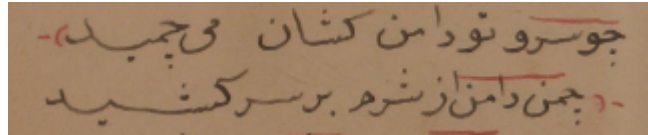 چو سرو تو دامن کشان می چمید
چمن دامن از شرم بر سر کشید